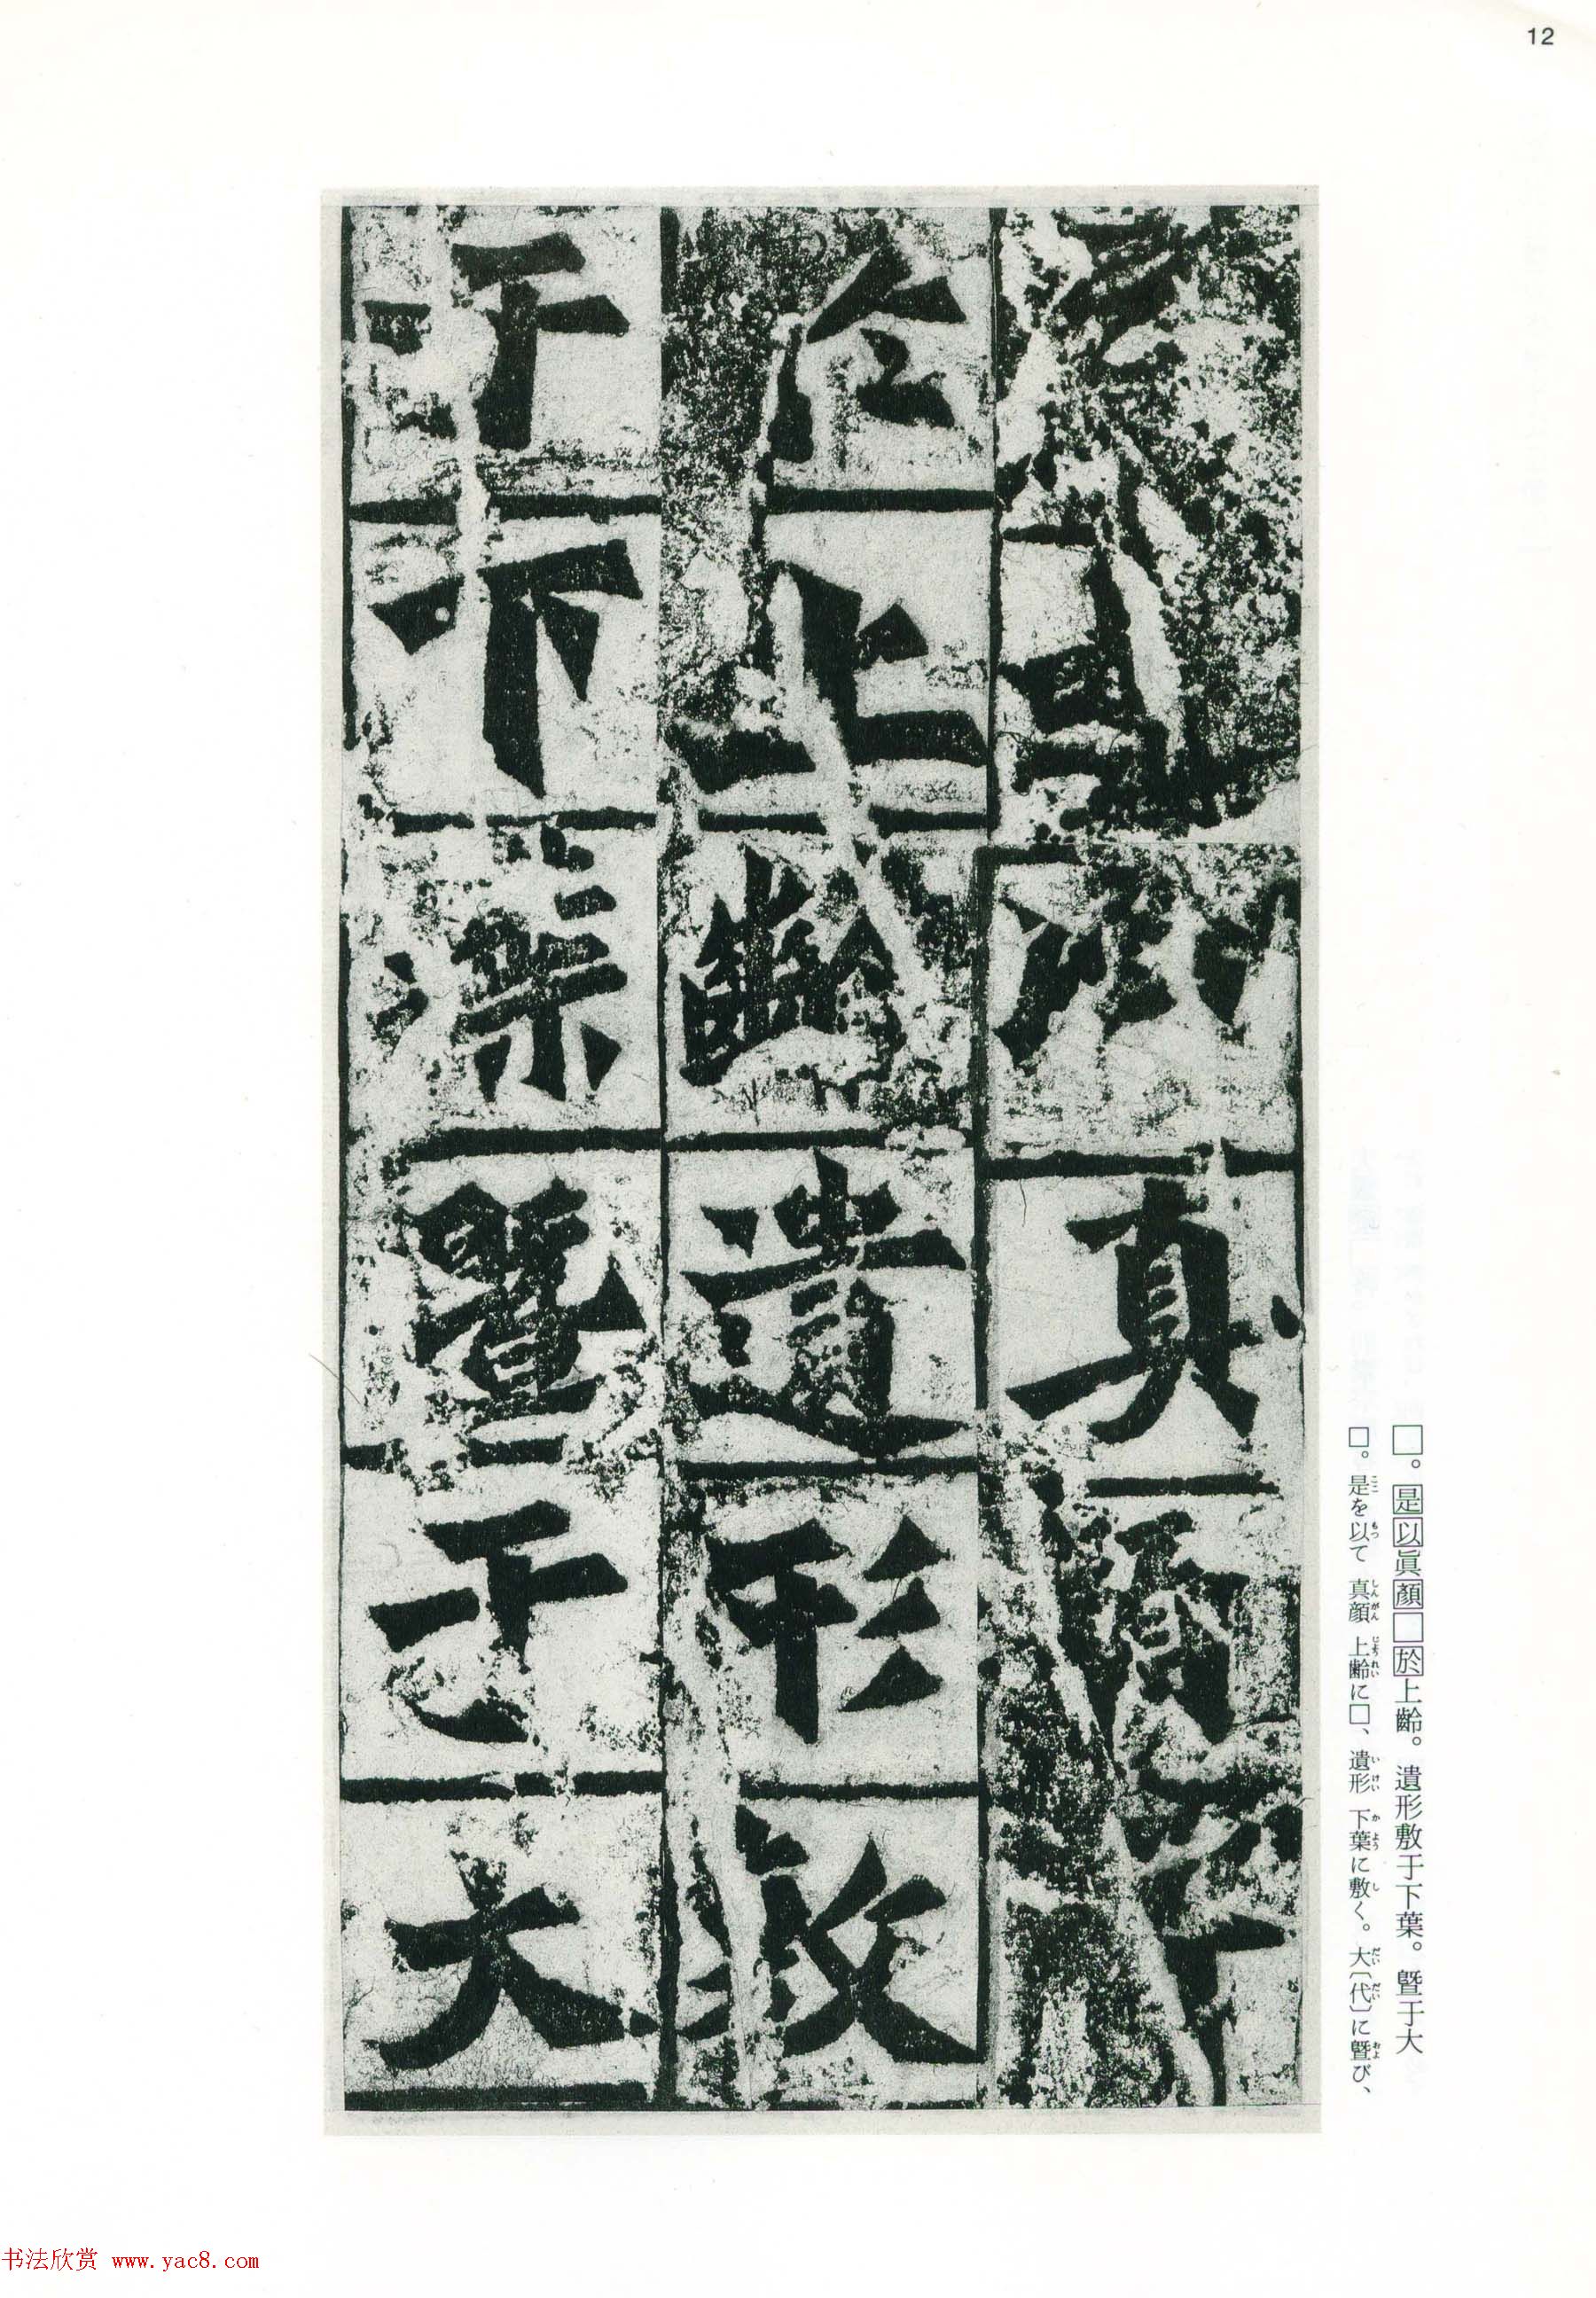 12
真
於上齡遺形敷
于下葉曁于大
□。是以眞顏□於上齡。遺形敷于下葉。曁于大
□。是を以て 真顔 上齢に□、遺形 下葉に敷く。大〔代〕に曁び、
书法欣赏 www.yac8.com